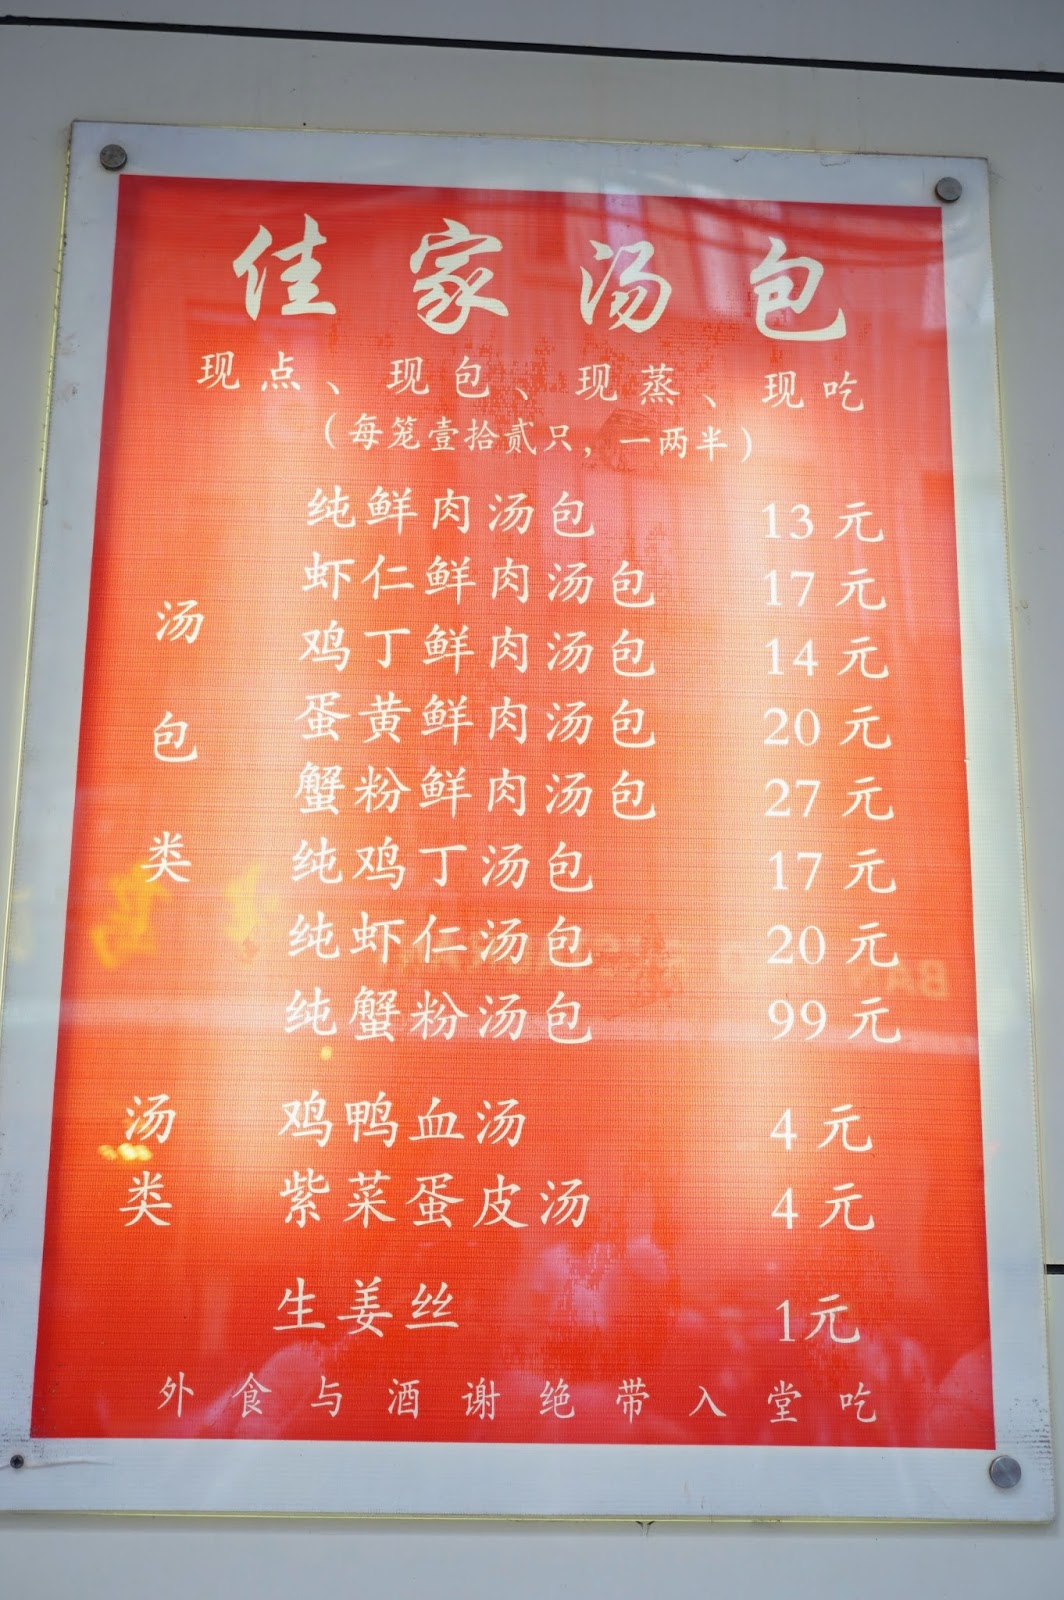 佳家汤包
现点、现包、现蒸、现吃
（每笼壹拾贰只，一两半）
汤包类
纯鲜肉汤包 13元
虾仁鲜肉汤包 17元
鸡丁鲜肉汤包 14元
蛋黄鲜肉汤包 20元
蟹粉鲜肉汤包 27元
纯鸡丁汤包 17元
纯虾仁汤包 20元
纯蟹粉汤包 99元
汤类
鸡鸭血汤 4元
紫菜蛋皮汤 4元
生姜丝 1元
外食与酒谢绝带入堂吃